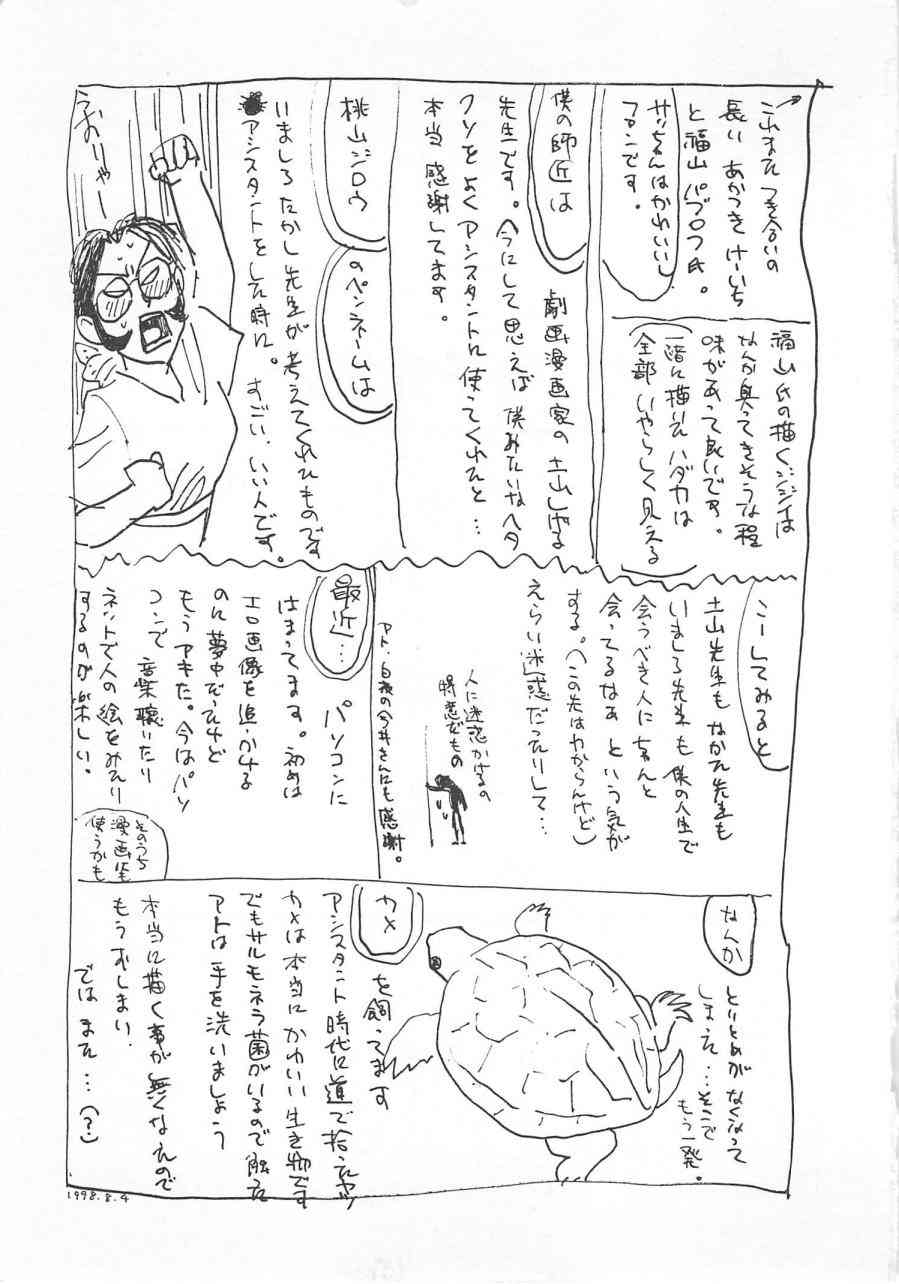 これまたつき合いの
長い あかつきけーいち
と福山パブロフ氏。
サっちんはかわいい
フーンです。
福山氏の描くジジイは
なんか臭ってきそうな程
味があって良いです。
一階に描いたハダカは
全部いやらしく見える
僕の師匠は
劇画漫画家の土山しげる
先生です。今にして思えば僕みたいなヘタ
クソをよくアシスタントに使ってくれたと…
本当感謝してます。
桃山ジロウ
のペンネームは
いましろたかし先生が考えてくれたものです
アシスタントをした時に。すごい、いい人です。
うおーりゃー
こーしてみると
土山先生もなかた先生も
いましろ先生も僕の人生で
会うべき人にちゃんと
会ってるなぁという気が
する。(この先はわからんけど)
えらい迷惑だったりして…
人に迷惑かけるの
得意だもの
アト、白夜の今井さんにも感謝。
最近…
パソコンに
はまってます。初めは
エロ画像を追いかける
のに夢中だったけど
もうアキた。今はパソ
コンで音楽聴いたり
ネットで人の絵をみたり
するのが楽しい。
そのうち
漫画にも
使うかも
なんか
とりとめがなくなって
しまった…そこで
もう一発。
カメ
を飼ってます
アシスタント時代に道で拾ったヤツ
カメは本当にかわいい生き物です
でもサルモネラ菌がいるので触った
アトは手を洗いましょう
本当に描く事が無くなったので
もうおしまい。
ではまた…(?)
1998.8.4